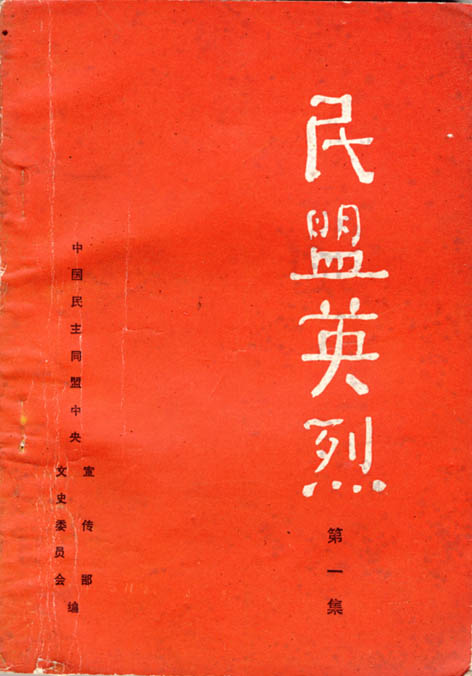 民盟英烈
第一集
中国民主同盟中央
宣传部
文史委员会
编